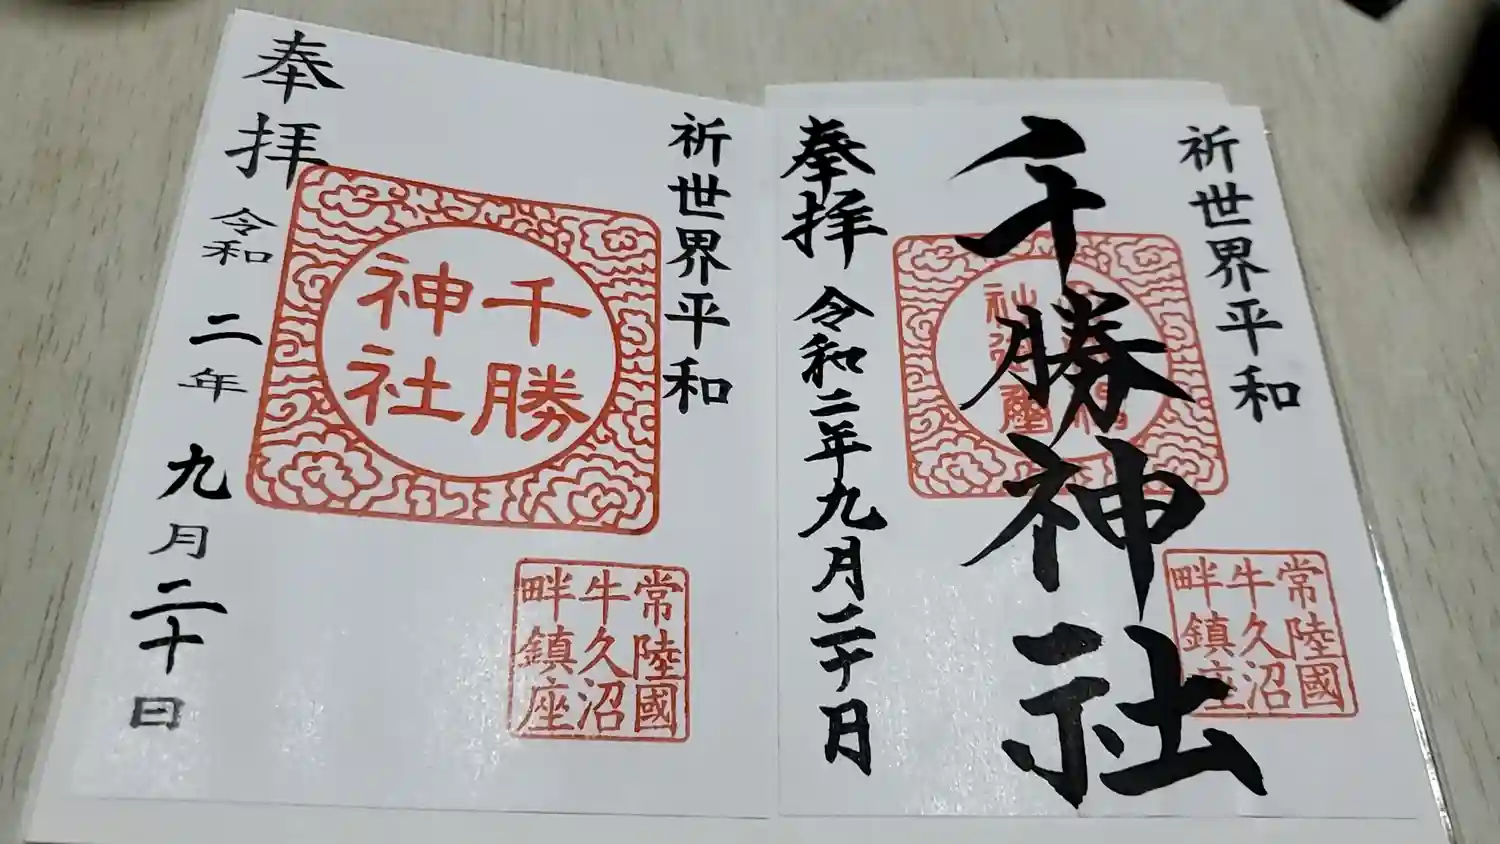 祈世界平和
千勝神社
奉拝 令和二年九月二十日
常陸國
牛久沼
畔鎮座
祈世界平和
千勝
神社
奉拝
令和 二年 九月二十日
常陸國
牛久沼
畔鎮座